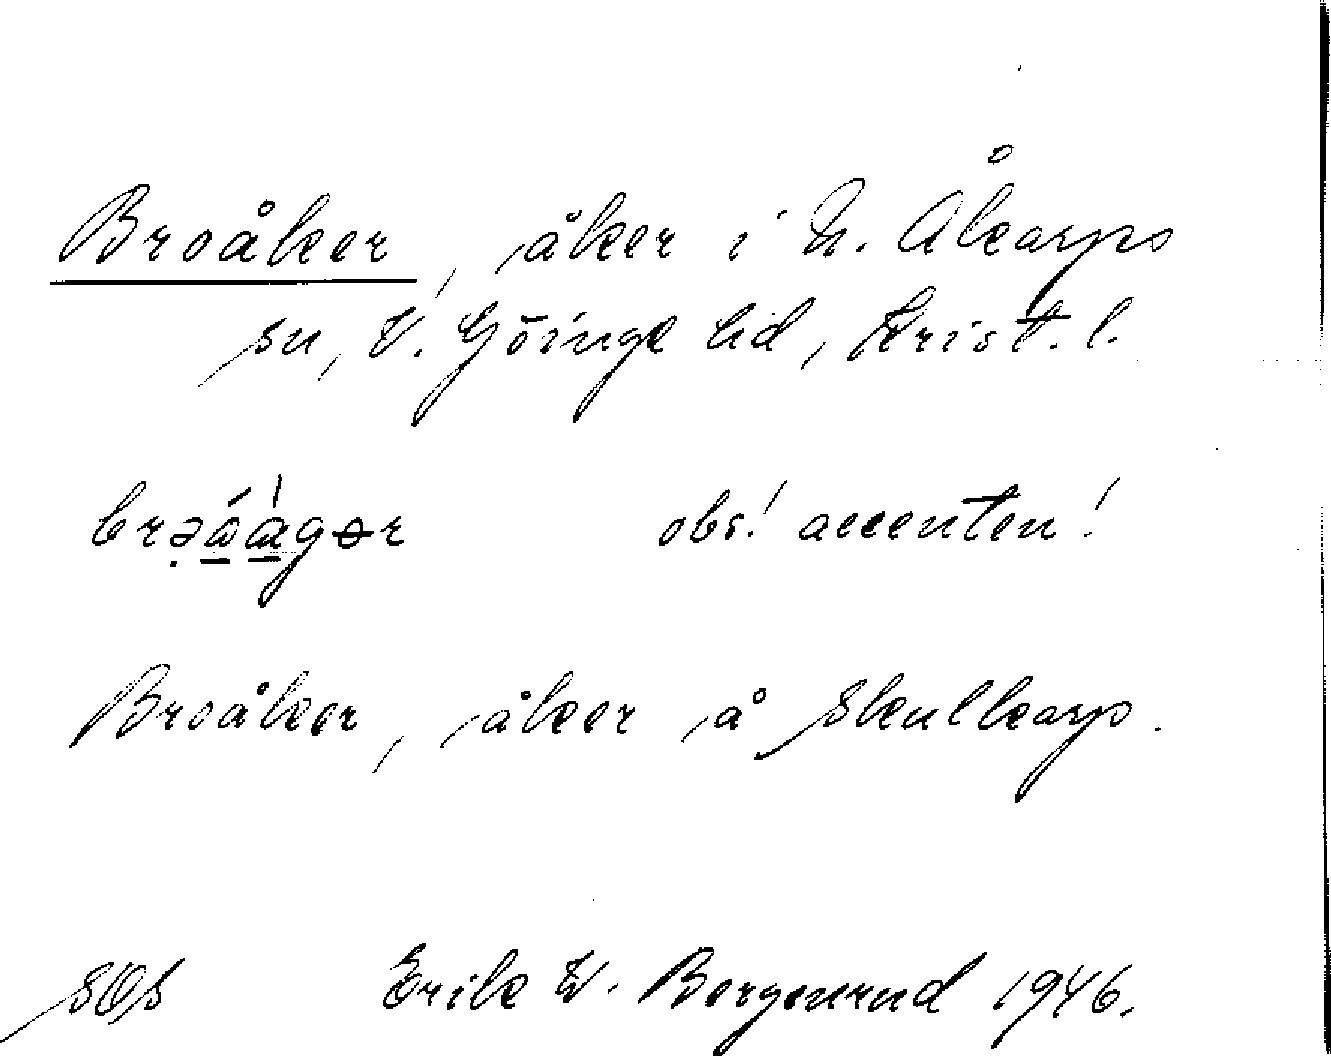 Broåker, åker i N. Åkarps
sn, V. Göinge hd, Krist. l.
obs! accenten!
Broåker, åker å Skullkarp.
Erik W. Bergenrud 1946.